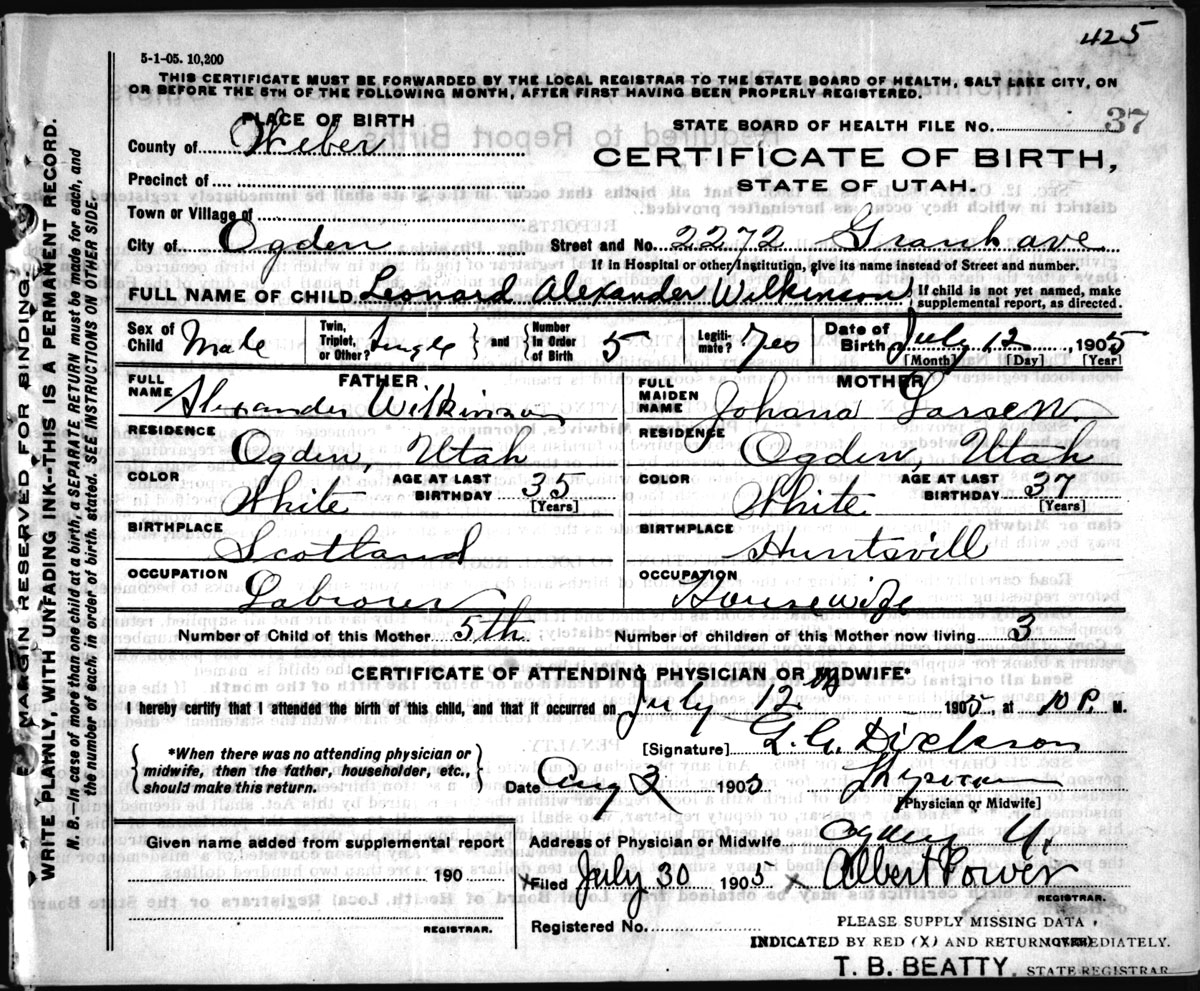 425
5-1-05. 10,200
THIS CERTIFICATE MUST BE FORWARDED BY THE LOCAL REGISTRAR TO THE STATE BOARD OF HEALTH, SALT LAKE CITY, ON
OR BEFORE THE 5TH OF THE FOLLOWING MONTH, AFTER FIRST HAVING BEEN PROPERLY REGISTERED.
PLACE OF BIRTH
STATE BOARD OF HEALTH FILE No. 37
County of Weber
CERTIFICATE OF BIRTH,
Precinct of
STATE OF UTAH.
Town or Village of
City of Ogden Street and No. 2272 Grant ave
If in Hospital or other Institution, give its name instead of Street and number.
FULL NAME OF CHILD Leonard Alexander Wilkinson { If child is not yet named, make
supplemental report, as directed.
Sex of Child Male Twin, Triplet, or Other? Single } and { Number in Order of Birth 5 Legiti-mate? Yes Date of Birth July 12, 1905
[Month] [Day] [Year]
FATHER
FULL NAME Alexander Wilkinson
RESIDENCE Ogden, Utah
COLOR White AGE AT LAST BIRTHDAY 35
[Years]
BIRTHPLACE Scotland
OCCUPATION Labrorer
MOTHER
FULL MAIDEN NAME Johana Larsen
RESIDENCE Ogden, Utah
COLOR White AGE AT LAST BIRTHDAY 37
[Years]
BIRTHPLACE Huntsvill
OCCUPATION Housewife
Number of Child of this Mother 5th Number of children of this Mother now living 3
CERTIFICATE OF ATTENDING PHYSICIAN OR MIDWIFE*
I hereby certify that I attended the birth of this child, and that it occurred on July 12th 1905, at 10 P. M.
{ *When there was no attending physician or
midwife, then the father, householder, etc.,
should make this return. }
[Signature] Dickson
Date Aug 2 1905
[Physician or Midwife]
Given name added from supplemental report
190
REGISTRAR.
Address of Physician or Midwife Ogden U.
Filed July 30 1905 x Albert Power
REGISTRAR.
Registered No.
PLEASE SUPPLY MISSING DATA
INDICATED BY RED (X) AND RETURN IMMEDIATELY.
T. B. BEATTY, STATE REGISTRAR
MARGIN RESERVED FOR BINDING.
WRITE PLAINLY, WITH UNFADING INK--THIS IS A PERMANENT RECORD.
N. B.--In case of more than one child at a birth, a SEPARATE RETURN must be made for each, and
the number of each, in order of birth, stated. SEE INSTRUCTIONS ON OTHER SIDE.